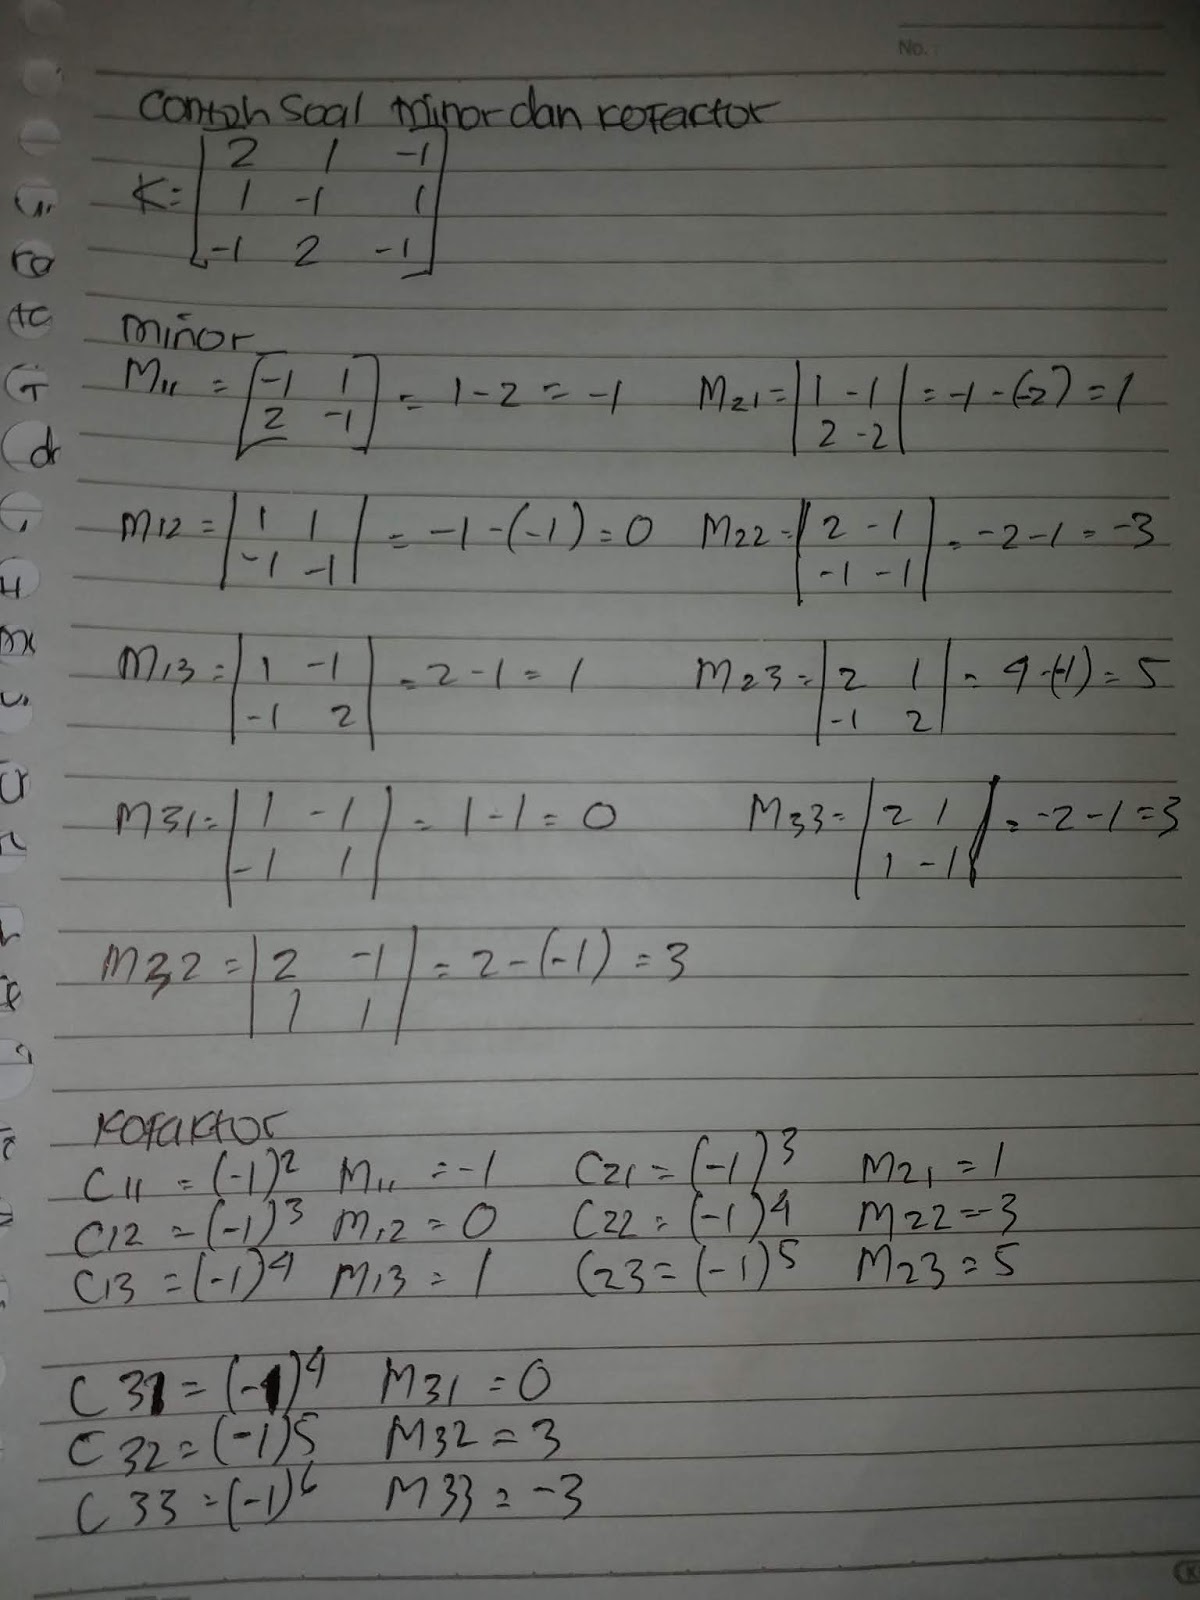 No. :
Contoh Soal Minor dan kofactor
K= [ 2 1 -1
1 -1 1
-1 2 -1 ]
Minor
M11 = [ -1 1 = 1-2 = -1 M21= | 1 -1 | = -1-(-2) = 1
2 -1 ] 2 -2
M12 = | 1 1 | = -1-(-1) = 0 M22= | 2 -1 | = -2-1 = -3
-1 -1 -1 -1
M13 = | 1 -1 | = 2-1 = 1 M23 = | 2 1 | = 4-(-1) = 5
-1 2 -1 2
M31= | 1 -1 | = 1-1 = 0 M33= | 2 1 | = -2-1 = 3
-1 1 1 -1
M32 = | 2 -1 | = 2-(-1) = 3
1 1
Kofaktor
C11 = (-1)2 M11 = -1 C21 = (-1)3 M21 = 1
C12 = (-1)3 M12 = 0 C22 = (-1)4 M22 = -3
C13 = (-1)4 M13 = 1 C23 = (-1)5 M23 = 5
C31 = (-1)4 M31 = 0
C32 = (-1)5 M32 = 3
C33 = (-1)6 M33 = -3